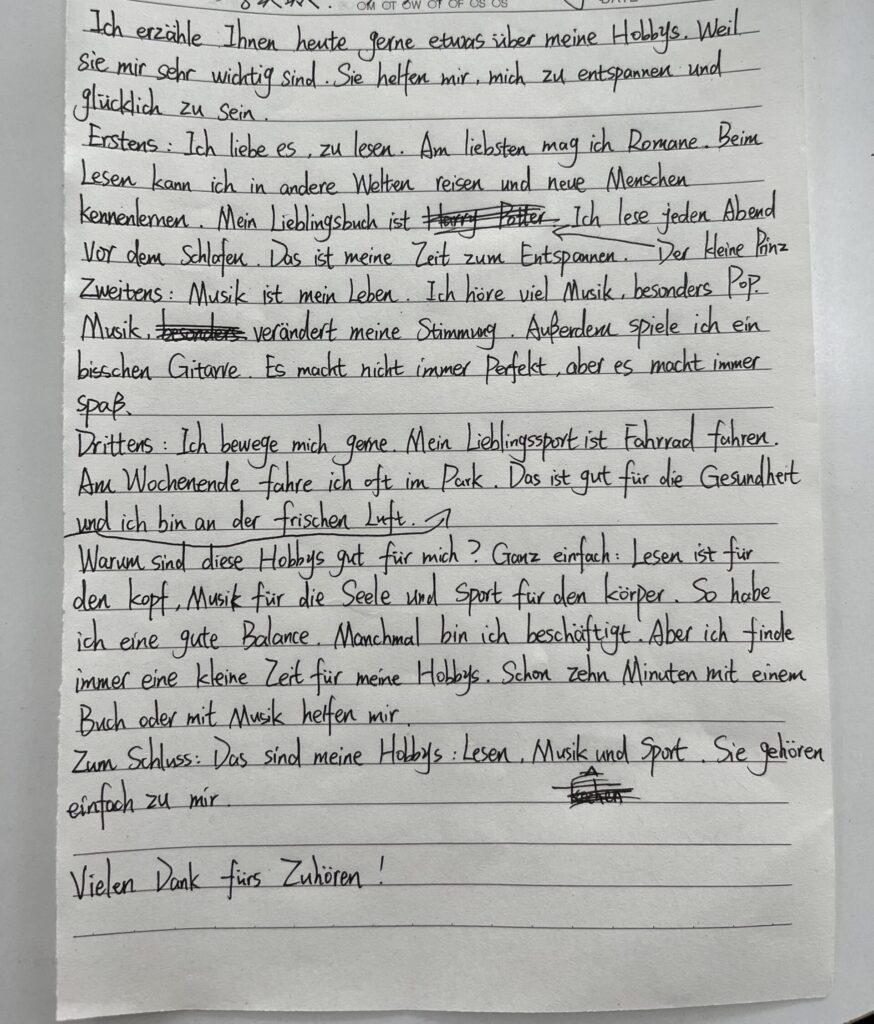 OM OT OW OT OF OS OS
Ich erzähle Ihnen heute gerne etwas über meine Hobbys. Weil
sie mir sehr wichtig sind. Sie helfen mir, mich zu entspannen und
glücklich zu sein.
Erstens: Ich liebe es, zu lesen. Am liebsten mag ich Romane. Beim
Lesen kann ich in andere Welten reisen und neue Menschen
kennenlernen. Mein Lieblingsbuch ist Harry Potter Ich lese jeden Abend
vor dem Schlafen. Das ist meine Zeit zum Entspannen. Der kleine Prinz
Zweitens: Musik ist mein Leben. Ich höre viel Musik, besonders Pop.
Musik, besonders verändert meine Stimmung. Außerdem spiele ich ein
bisschen Gitarre. Es macht nicht immer Perfekt, aber es macht immer
spaß.
Drittens: Ich bewege mich gerne. Mein Lieblingssport ist Fahrrad fahren.
Am Wochenende fahre ich oft im Park. Das ist gut für die Gesundheit
und ich bin an der frischen Luft.
Warum sind diese Hobbys gut für mich? Ganz einfach: Lesen ist für
den kopf, Musik für die Seele und Sport für den körper. So habe
ich eine gute Balance. Manchmal bin ich beschäftigt. Aber ich finde
immer eine kleine Zeit für meine Hobbys. Schon zehn Minuten mit einem
Buch oder mit Musik helfen mir.
Zum Schluss: Das sind meine Hobbys: Lesen, Musik und Sport. Sie gehören
einfach zu mir.
Vielen Dank fürs Zuhören!